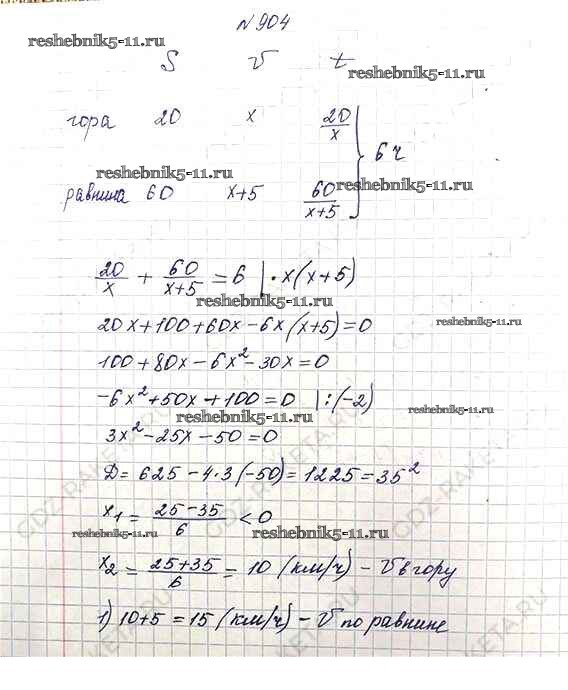 №904
reshebnik5-11.ru
S V t
reshebnik5-11.ru
гора 20 x 20/x
6 ч
reshebnik5-11.ru
равнина 60 x+5 60/(x+5)
reshebnik5-11.ru
20/x + 60/(x+5) = 6 | · x(x+5)
reshebnik5-11.ru
20x+100+60x-6x(x+5)=0
reshebnik5-11.ru
100+80x-6x²-30x=0
-6x²+50x+100=0 | :(-2)
reshebnik5-11.ru
reshebnik5-11.ru
3x²-25x-50=0
D=625-4·3(-50)=1225=35²
x₁=(25-35)/6<0
reshebnik5-11.ru
reshebnik5-11.ru
x₂=(25+35)/6=10 (км/ч) - V в гору
1) 10+5=15 (км/ч) - V по равнине
GDZ-RAKETA.RU
GDZ-RAKETA.RU